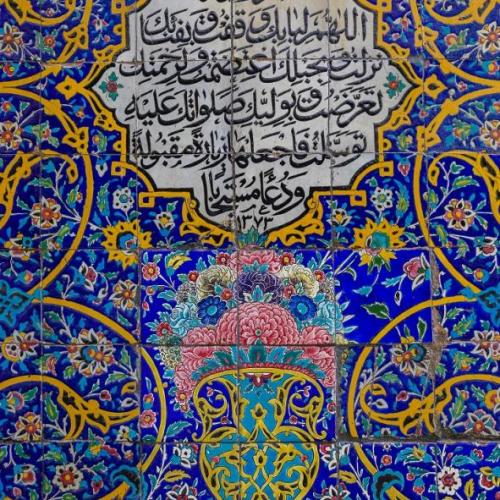 اللهم لبابك وقفت و بفنائك
نزلت و بحبلك اعتصمت و لرحمتك
تعرضت و بوليك صلواتك عليه
توسلت فاجعلها زيارة مقبولة
و دعاء مستجابا
١٣٧٣